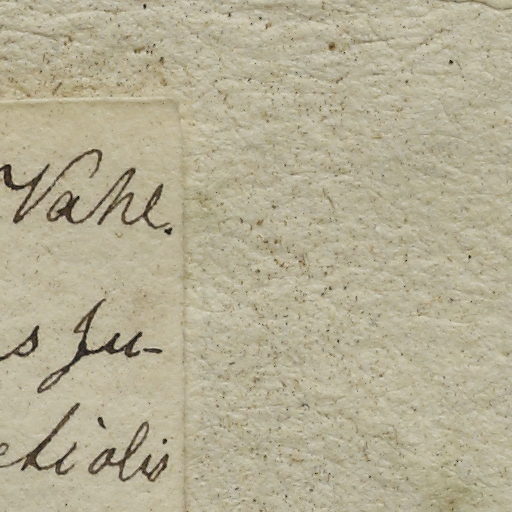 Vahl.
s Ju-
etiolis